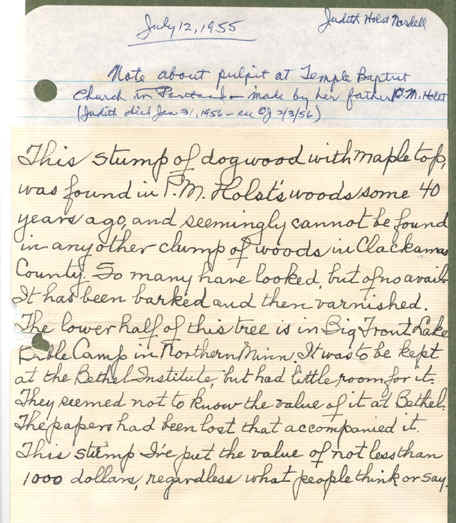 July 12, 1955
Judith Holst Nardell
Note about pulpit at Temple Baptist
Church in Portland - made by her father P. M. Holst
(Judith died Jan 31, 1956 - 3/3/56)
This stump of dogwood with maple top,
was found in P. M. Holst's woods some 40
years ago, and seemingly cannot be found
in any other clump of woods in Clackamas
County. So many have looked, but of no avail.
It has been barked and then varnished.
The lower half of this tree is in Big Trout Lake
Bible Camp in Northern Minn. It was to be kept
at the Bethel Institute, but had little room for it.
They seemed not to know the value of it at Bethel.
The papers had been lost that accompanied it.
This stump I've put the value of not less than
1000 dollars, regardless what people think or say.